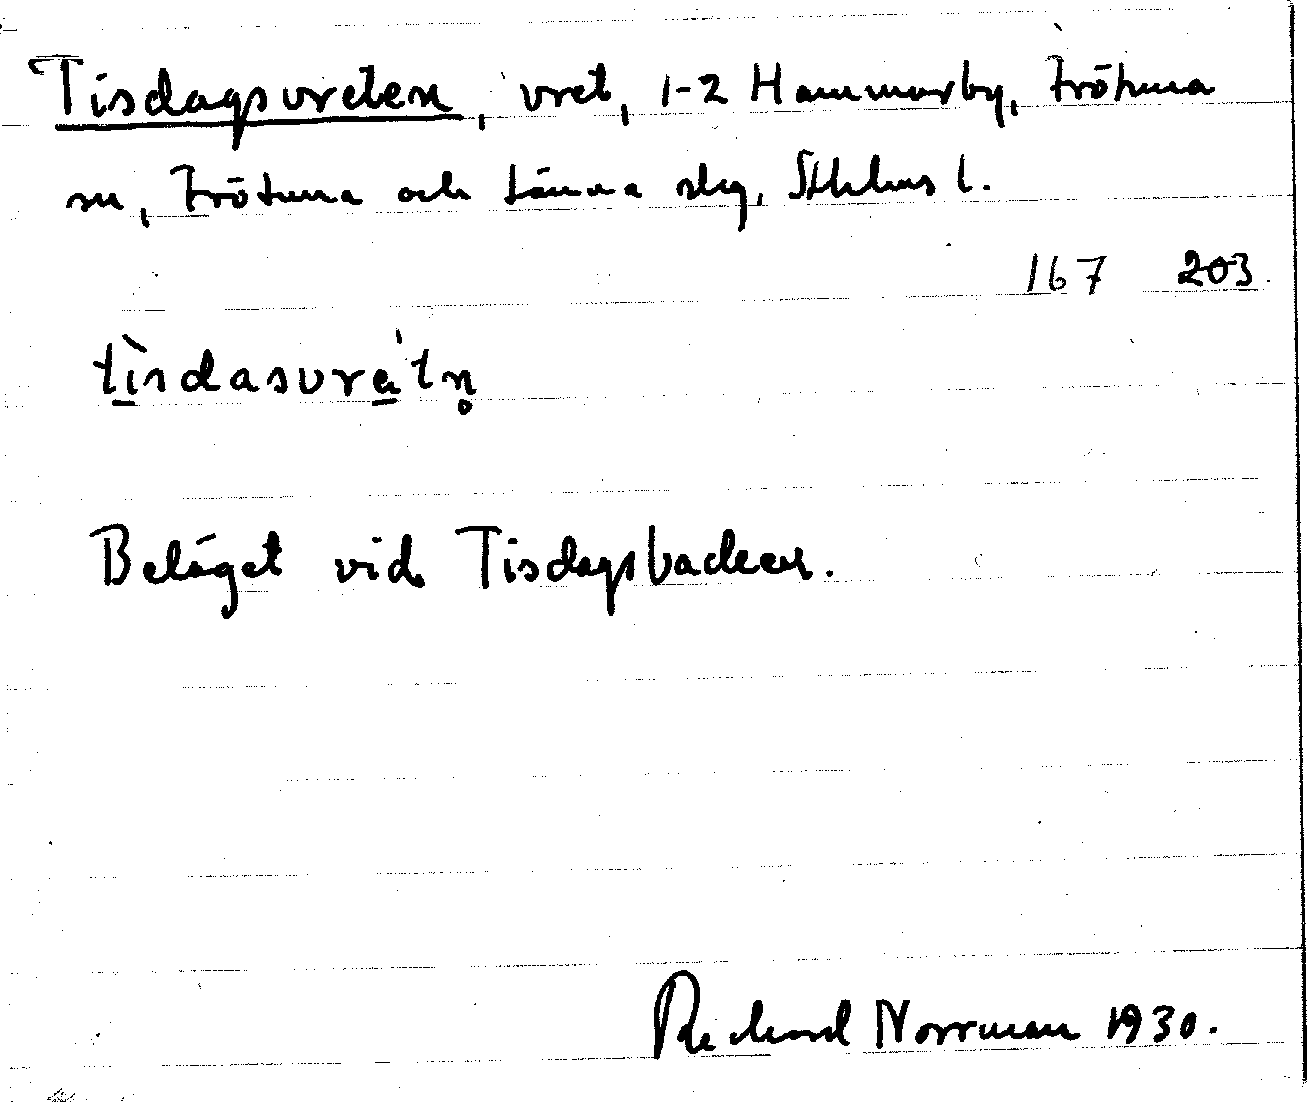 Tisdagsvreten, vret, 1-2 Hammarby, Frötuna
sn, Frötuna och Länna slg, Sthlms l.
167 203
tìsdasvrèt́n̥
Beläget vid Tisdagsbacken.
Richard Norrman 1930.